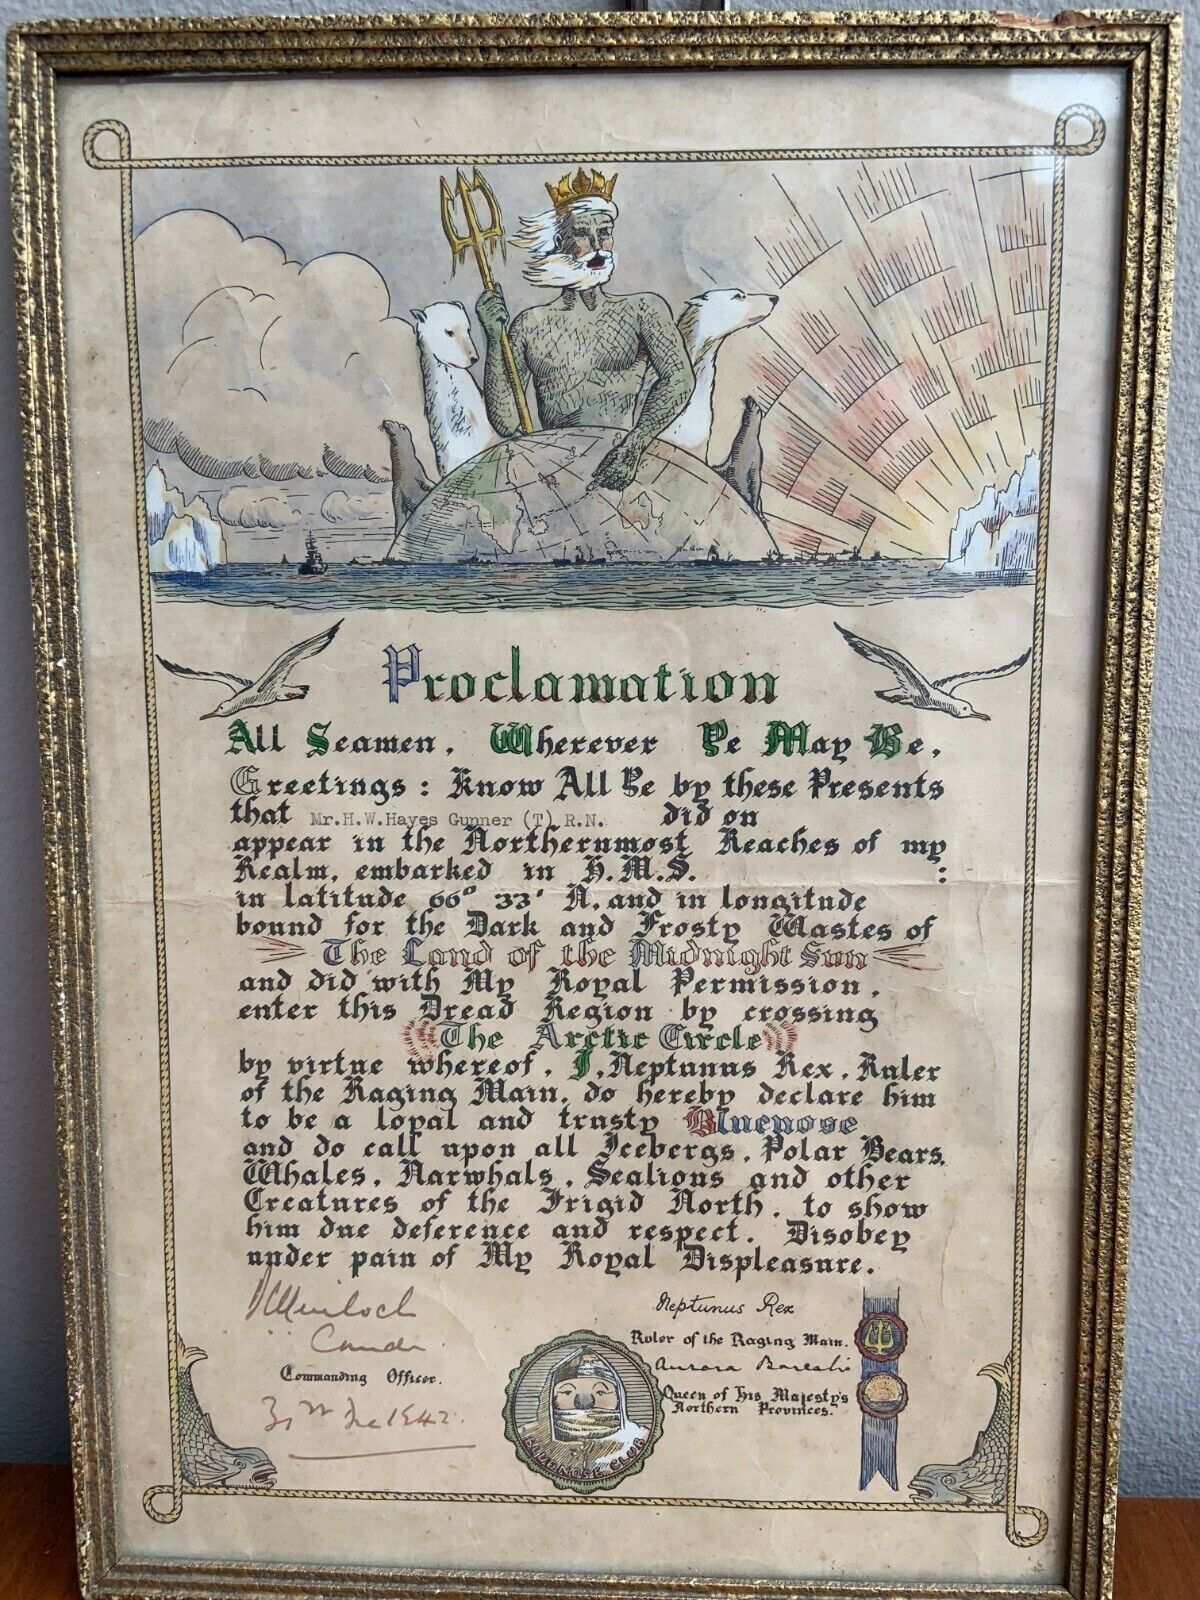 Proclamation
All Seamen, Wherever Ye May Be,
Greetings: Know All Ye by these Presents
that Mr.H.W.Hayes Gunner (T) R.N. did on
appear in the Northernmost Reaches of my
Realm, embarked in H.M.S. :
in latitude 66° 33' N, and in longitude
bound for the Dark and Frosty Wastes of
The Land of the Midnight Sun
and did with My Royal Permission,
enter this Dread Region by crossing
The Arctic Circle
by virtue whereof, I, Neptunus Rex, Ruler
of the Raging Main, do hereby declare him
to be a loyal and trusty Bluenose
and do call upon all Icebergs, Polar Bears,
Whales, Narwhals, Sealions and other
Creatures of the Frigid North, to show
him due deference and respect. Disobey
under pain of My Royal Displeasure.
Commanding Officer.
1942.
Neptunus Rex
Ruler of the Raging Main.
Aurora Borealis
Queen of His Majesty's
Northern Provinces.
BLUENOSE CLUB